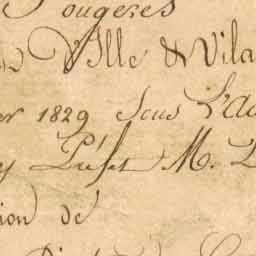 Fougeres
Ville & Vila
er 1829 Sous L'Au
Préfet M.
ion de